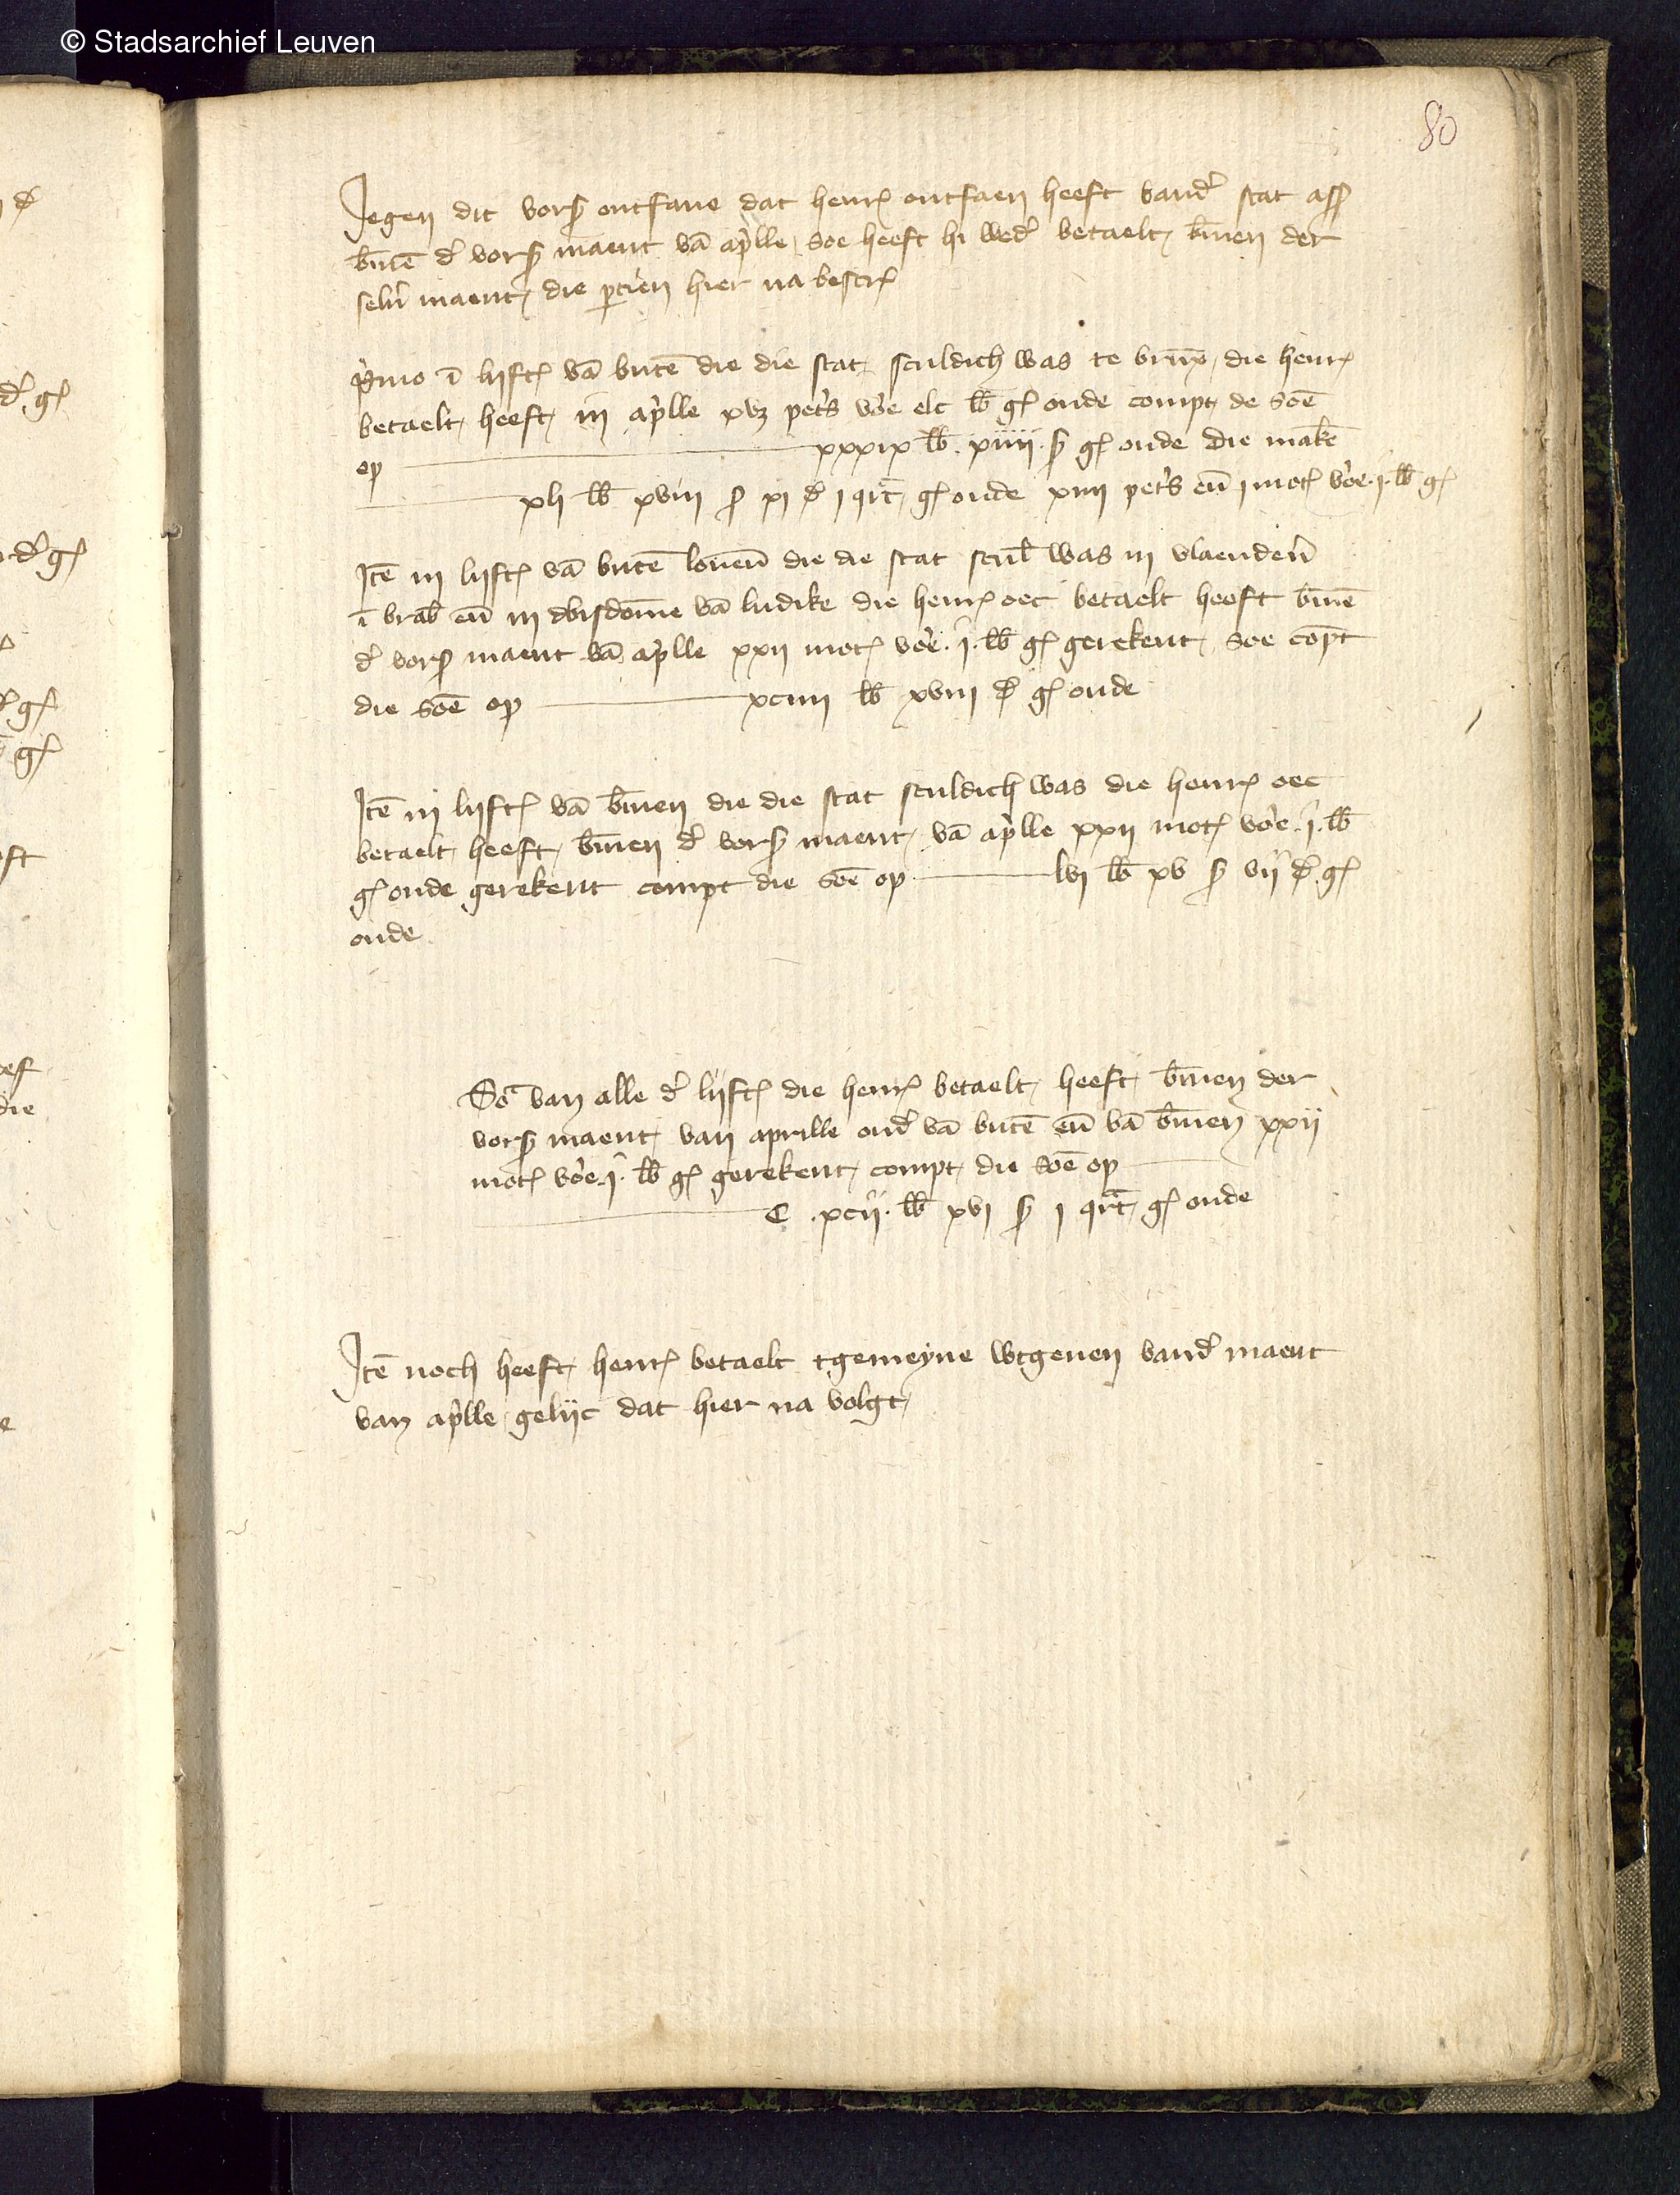 © Stadsarchief Leuven
80
Jegen dit vors ontfane dat henr ontfaen heeft vand' stat
bīnē d' vors maent vā ap'lle soe heeft hi wed' betaelt bīnen der
selu' maent die p̄tien hier na bescr
P'mo ī lijft vā butē die die stat sculdich was te brux die henr
betaelt heeft in ap'lle pet's vo'e elc lb g oude compt de sōē
op xxxix lb xiiii s g oude die makē
xli lb xviii s xi d i qrt g oude xiiii pet's eñ i mot vo'e i lb g
Itē in lijft vā butē louen̄ die die stat scul was in vlaender'
ī brab eñ in dbisdōme vā ludike die henr oec betaelt heeft bīnē
d' vors maent vā ap'lle xxii mot vo'e i lb g gerekent soe cōpt
die sōē op xciiii lb xviii d g oude
Itē in lijft vā bīnen die die stat sculdich was die henr oec
betaelt heeft bīnen d' vors maent vā ap'lle xxii mot vo'e i lb
g oude gerekent compt die sōē op lvi lb xv s vii d g
oude
Sōᵃ van alle d' lijft die henr betaelt heeft bīnen der
vors maent van aprille ond' vā butē eñ vā bīnen xxii
mot vo'e i lb g gerekent compt die sōē op
C xcii lb xvi s i qrt g oude
Itē noch heeft henr betaelt tgemeyne wtgeuen vand' maent
van ap'lle gelijc dat hier na volgt